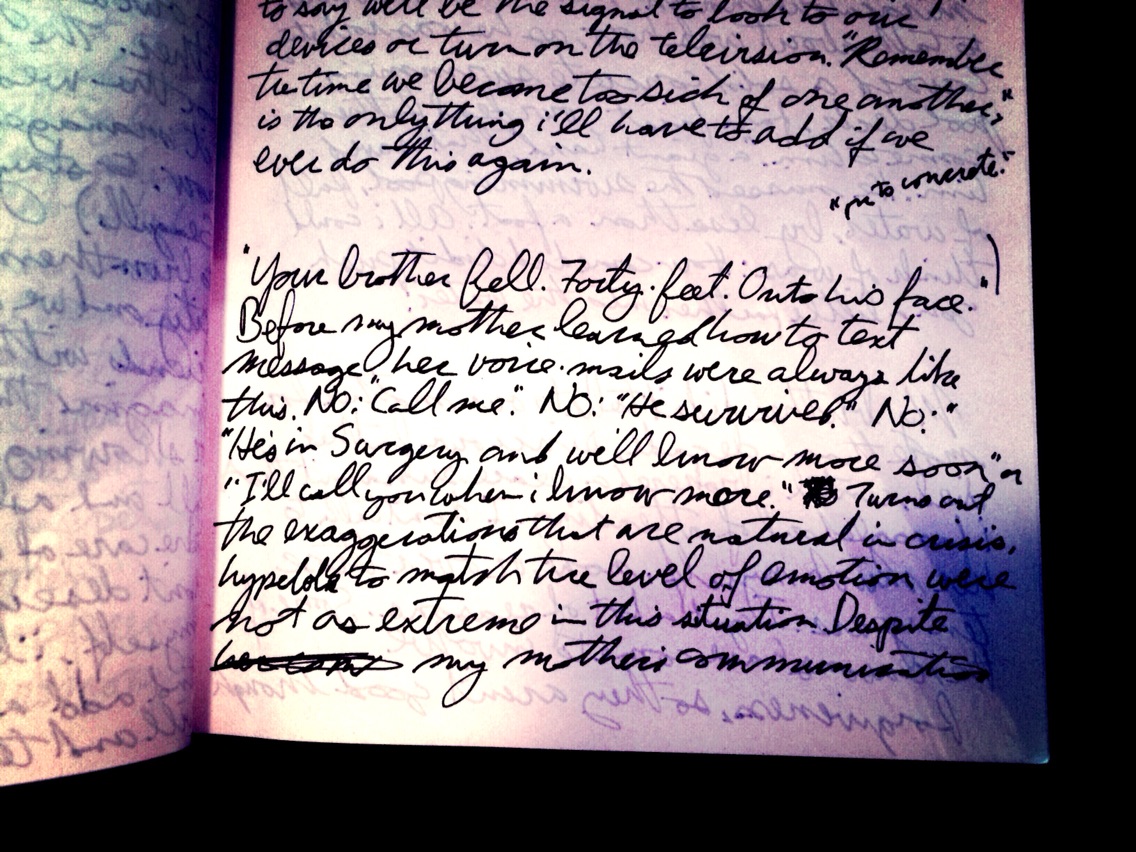 to say we'll be the signal to look to our
devices or turn on the television. "Remember
the time we became too sick of one another,"
is the only thing i'll have to add if we
ever do this again.
to concrete."
"Your brother fell. Forty. feet. Onto his face."
Before my mother learned how to text
message, her voice-mails were always like
this. NO: "Call me." NO: "He survived." NO: "
"He's in Surgery and we'll know more soon" or
"I'll call you when i know more." Turns out
the exaggerations that are natural in crisis,
hyperbole to match the level of emotion were
not as extreme in this situation. Despite
my mother's communication